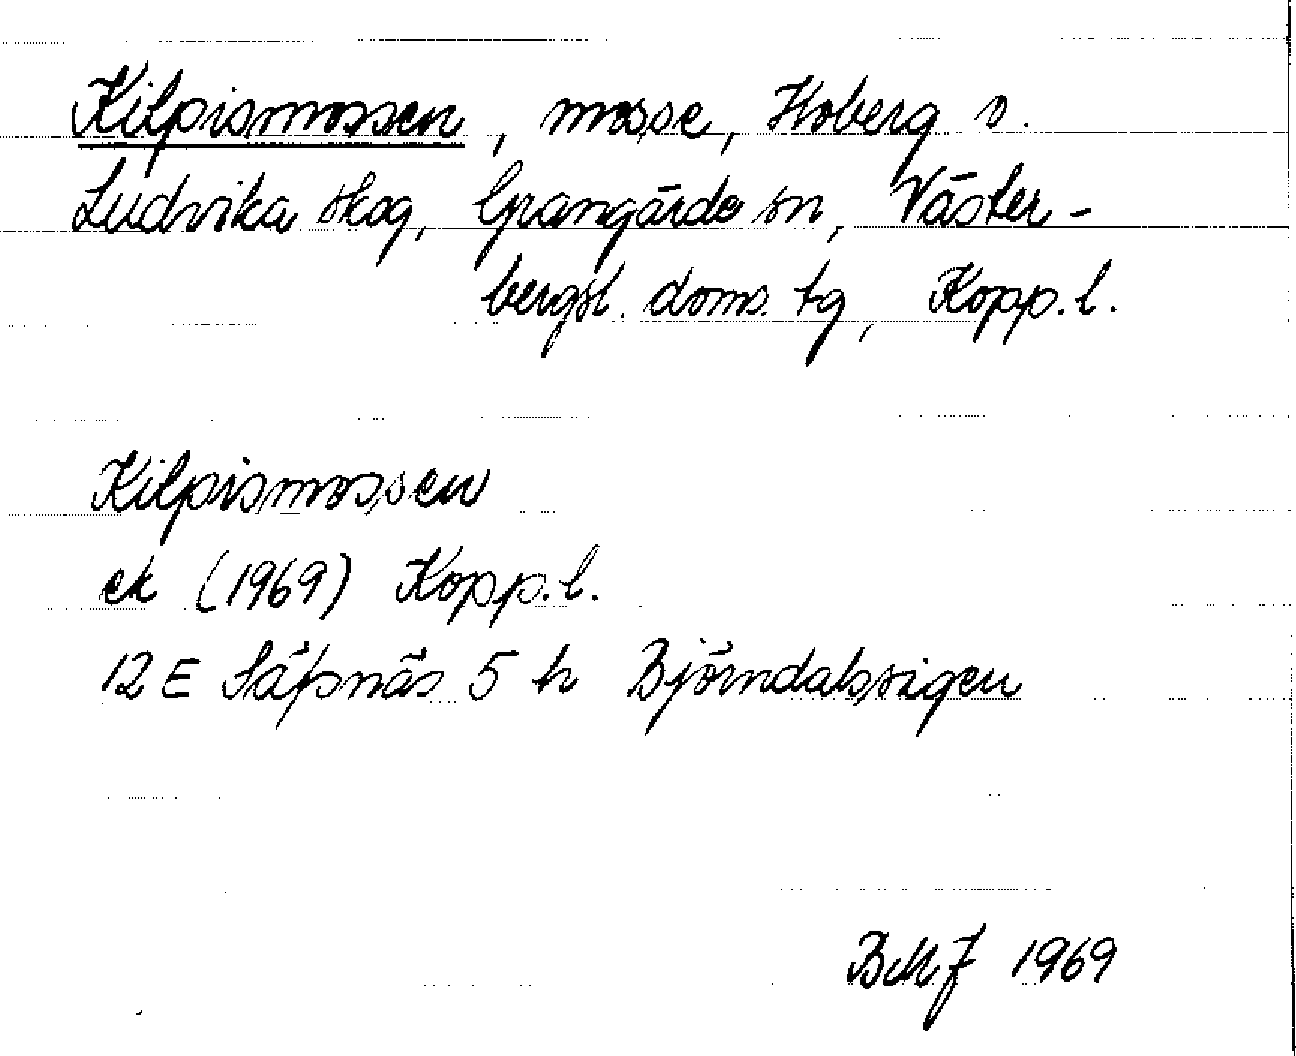 Kilpismossen, mosse, Hoberg o.
Ludvika skog, Grangärde sn, Väster-
bergsl. doms. tg, Kopp. l.
Kilpismossen
ek (1969) Kopp. l.
12 E Säfsnäs 5 h Björndalsvigen
BMJ 1969